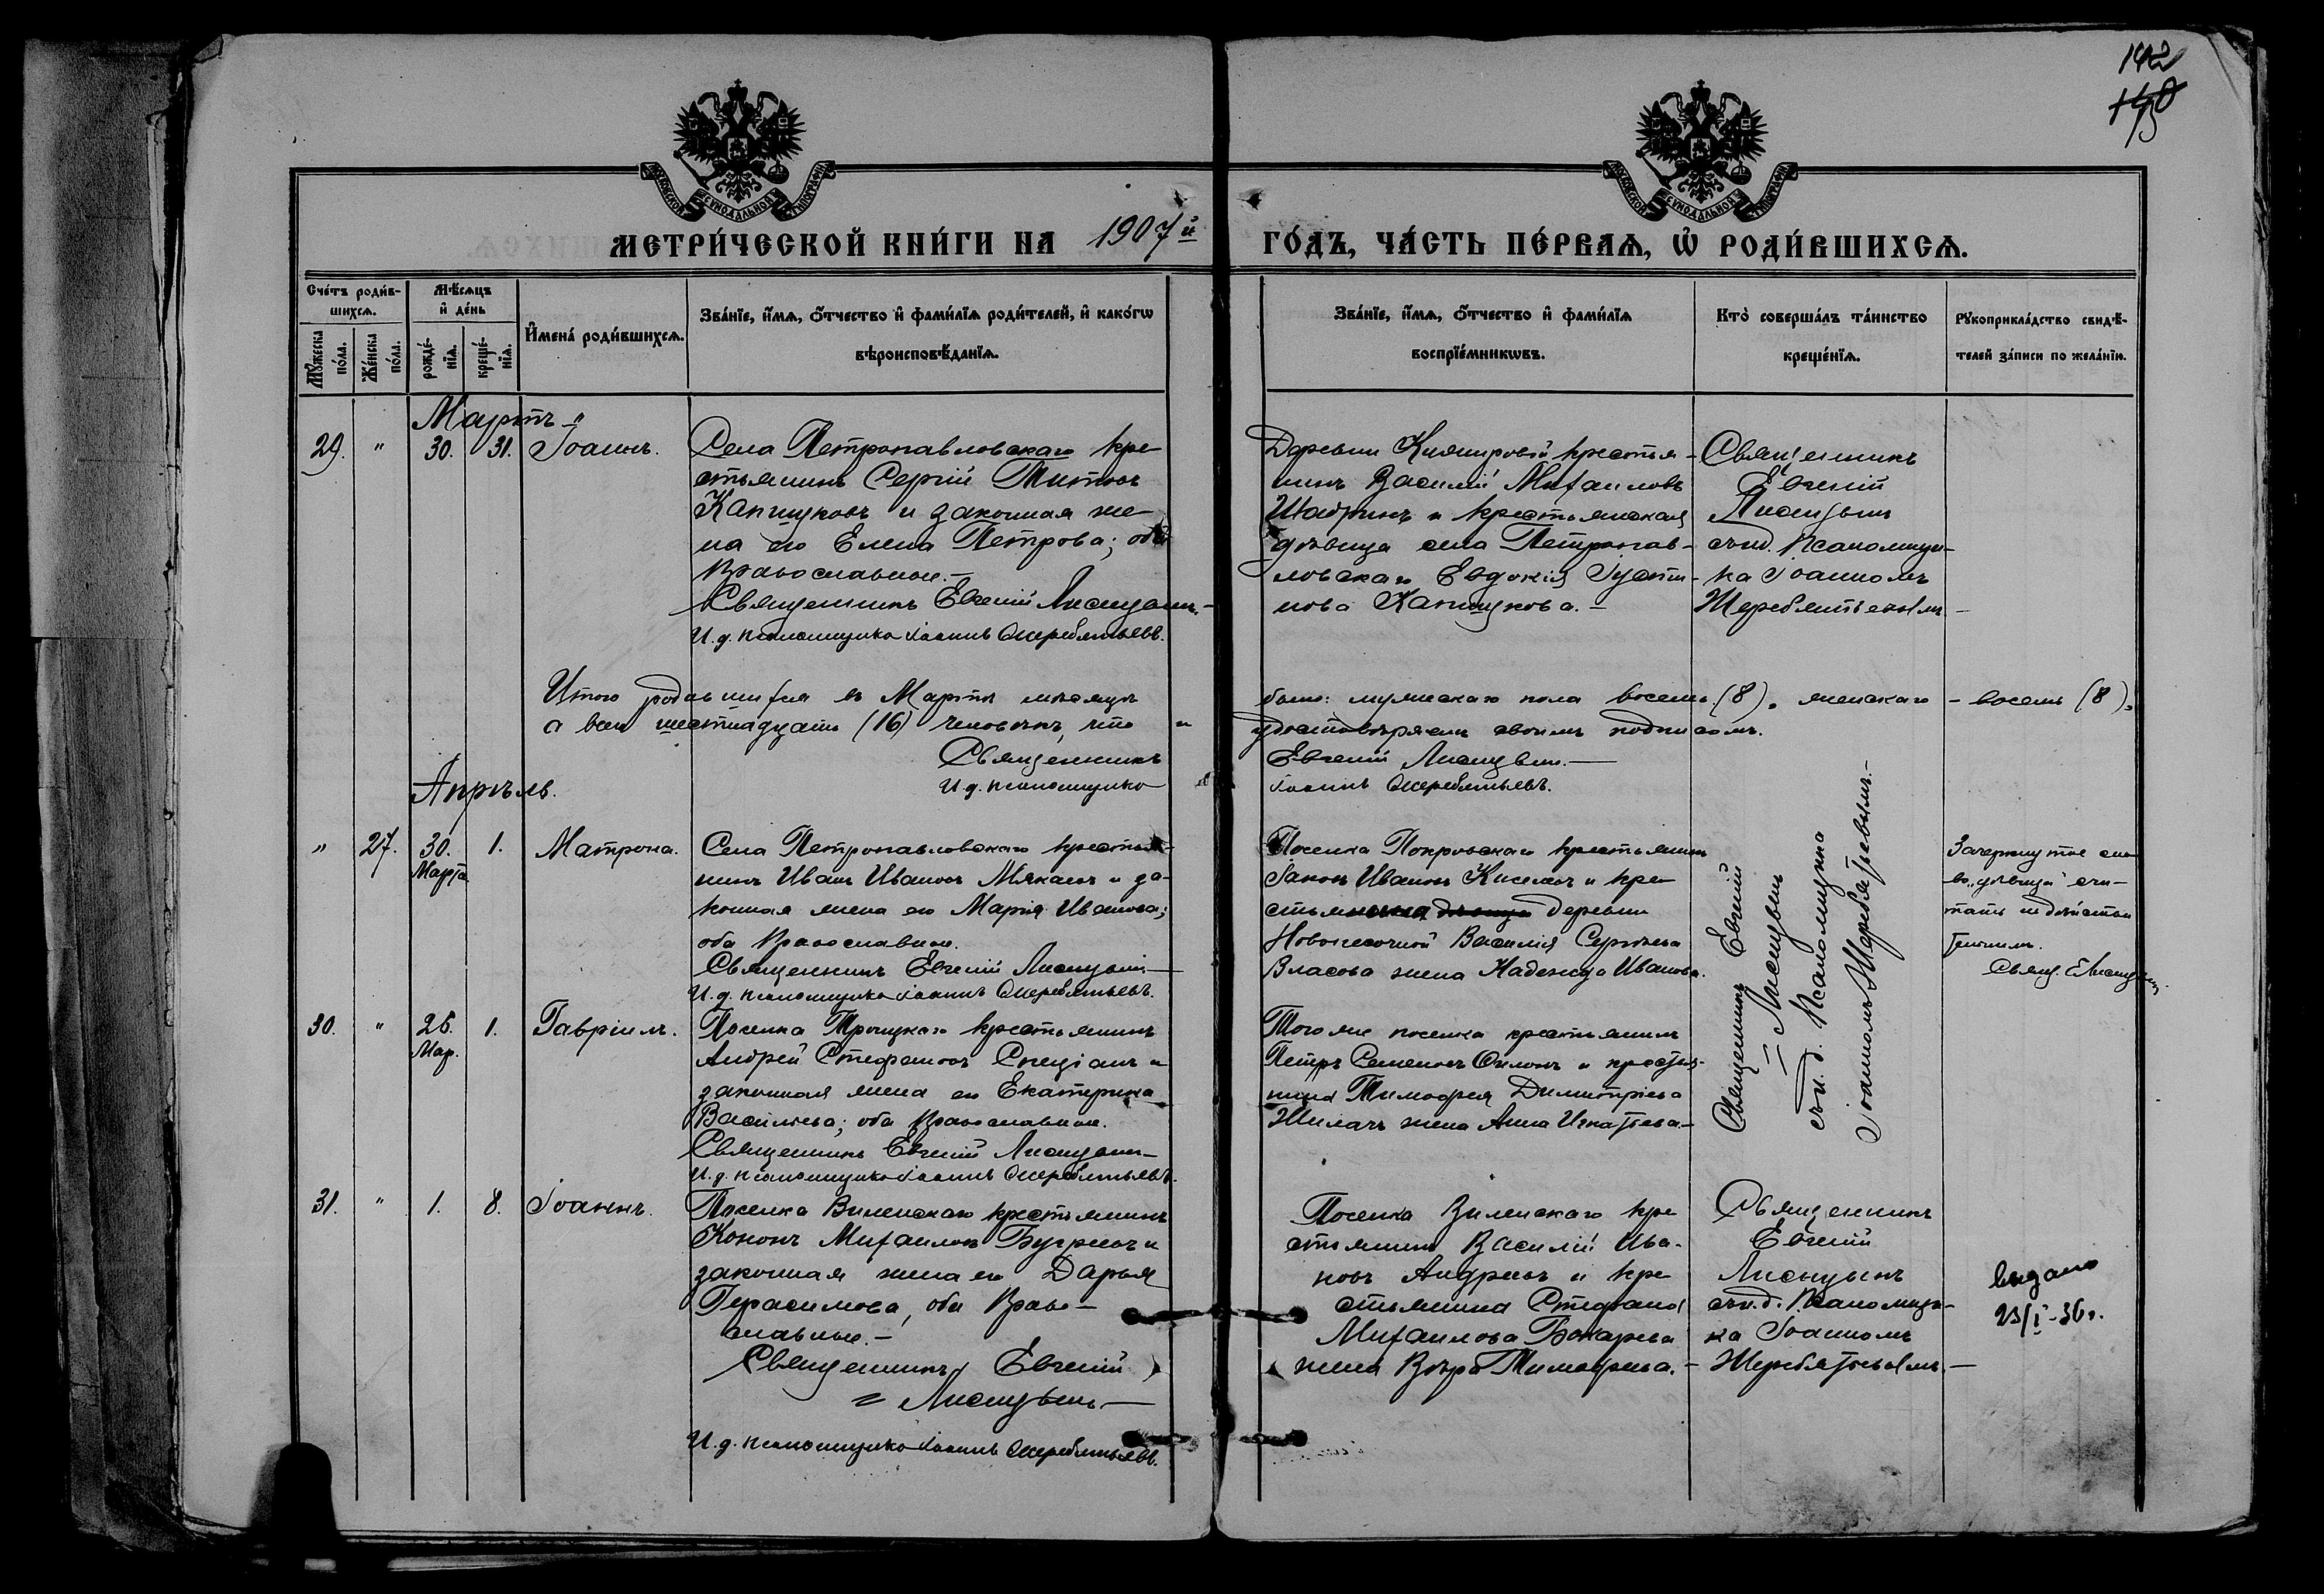 142
МОСКОВСКОЙ СѴНОДАЛЬНОЙ ТИПОГРАФІИ
МОСКОВСКОЙ СѴНОДАЛЬНОЙ ТИПОГРАФІИ
МЕТРИ́ЧЕСКОЙ КНИ́ГИ НА 1907й ГО́ДЪ, ЧА́СТЬ ПЕ́РВАѦ, Ѡ҆ РОДИ́ВШИХСѦ.
Сче́тъ роди́в-
шихсѧ.
Мꙋ́жеска по́ла.
Же́нска по́ла.
Мѣ́сѧцъ
и҆ де́нь
рожде́-
нїѧ.
креще́-
нїѧ.
И҆мена̀ роди́вшихсѧ.
Зва́нїе, и҆́мѧ, ѻ҆́тчество и҆ фами́лїѧ роди́телей, и҆ како́гѡ
вѣроисповѣ́данїѧ.
Зва́нїе, и҆́мѧ, ѻ҆́тчество и҆ фами́лїѧ
воспрїе́мникѡвъ.
Кто̀ соверша́лъ та́инство
креще́нїѧ.
Рꙋкоприкла́дство свидѣ́-
телей за́писи по жела́нїю.
Мартъ
29. " 30. 31. Іоаннъ.
Села Петропавловскаго кре
стьянинъ Сергій Титовъ
и законная же
на его Елена Петрова; оба
православные.-
Священникъ Евгеній Лисицынъ.-
И.д. псаломщика Іоаннъ Жеребятьевъ.
Деревни крестья-
нинъ Василій Михаиловъ
Шабринъ и крестьянская
дѣвица села Петропав-
ловскаго Евдокія
нова
Священникъ
Евгеній
Лисицынъ
съ и.д. псаломщи-
ка Іоанномъ
Жеребятьевымъ.-
Итого родившихся въ Мартѣ мѣсяцѣ было: мужескаго пола восемь (8), женскаго - восемь (8),
а всего шестнадцать (16) человѣкъ, что и удостовѣряемъ своимъ подписомъ.
Священникъ Евгеній Лисицынъ.-
И.д. псаломщика Іоаннъ Жеребятьевъ.
Апрѣль.
" 27. 30. 1. Матрона.
Марта
Села Петропавловскаго крестья-
нинъ Иванъ Ивановъ и за-
конная жена его Марія Иванова;
оба православные.
Священникъ Евгеній Лисицынъ.-
И.д. псаломщика Іоаннъ Жеребятьевъ.
Поселка Покровскаго крестьянинъ
Іаковъ Ивановъ Киселевъ и кре
деревни
Новопесочной Василія Сергѣева
Власова жена Надежда Иванова.
Священникъ Евгеній
Лисицынъ
съ и.д. псаломщика
Іоанномъ Жеребятьевымъ.-
Зачеркнутое сло
во "дѣвица" счи-
тать недѣйстви
тельнымъ.
Свящ. Е Лисицынъ
30. " 26. 1. Гавріилъ.
Мар.
Поселка Троицкаго крестьянинъ
Андрей Стефановъ и
законная жена его Екатерина
Васильева; оба православные.
Священникъ Евгеній Лисицынъ-
И.д. псаломщика Іоаннъ Жеребятьевъ.
Того же поселка крестьянинъ
Петръ Семеновъ и крестья-
нина Тимофея Димитріева
жена Анна Игнатьева-
31. " 1. 8. Іоаннъ.
Поселка Виленскаго крестьянинъ
Кононъ Михаиловъ и
законная жена его Дарья
Герасимова, оба право-
славные.-
Священникъ Евгеній
Лисицынъ-
И.д. псаломщика Іоаннъ Жеребятьевъ.
Поселка Виленскаго кре
стьянинъ Василій Ива-
новъ Андреевъ и кре
стьянина Стефана
Михаилова Бокарева
жена Вѣра Тимофеева.-
Священникъ
Евгеній
Лисицынъ
съ и.д. псаломщи-
ка Іоанномъ
Жеребятьевымъ.-
выдано
23/I-36г.